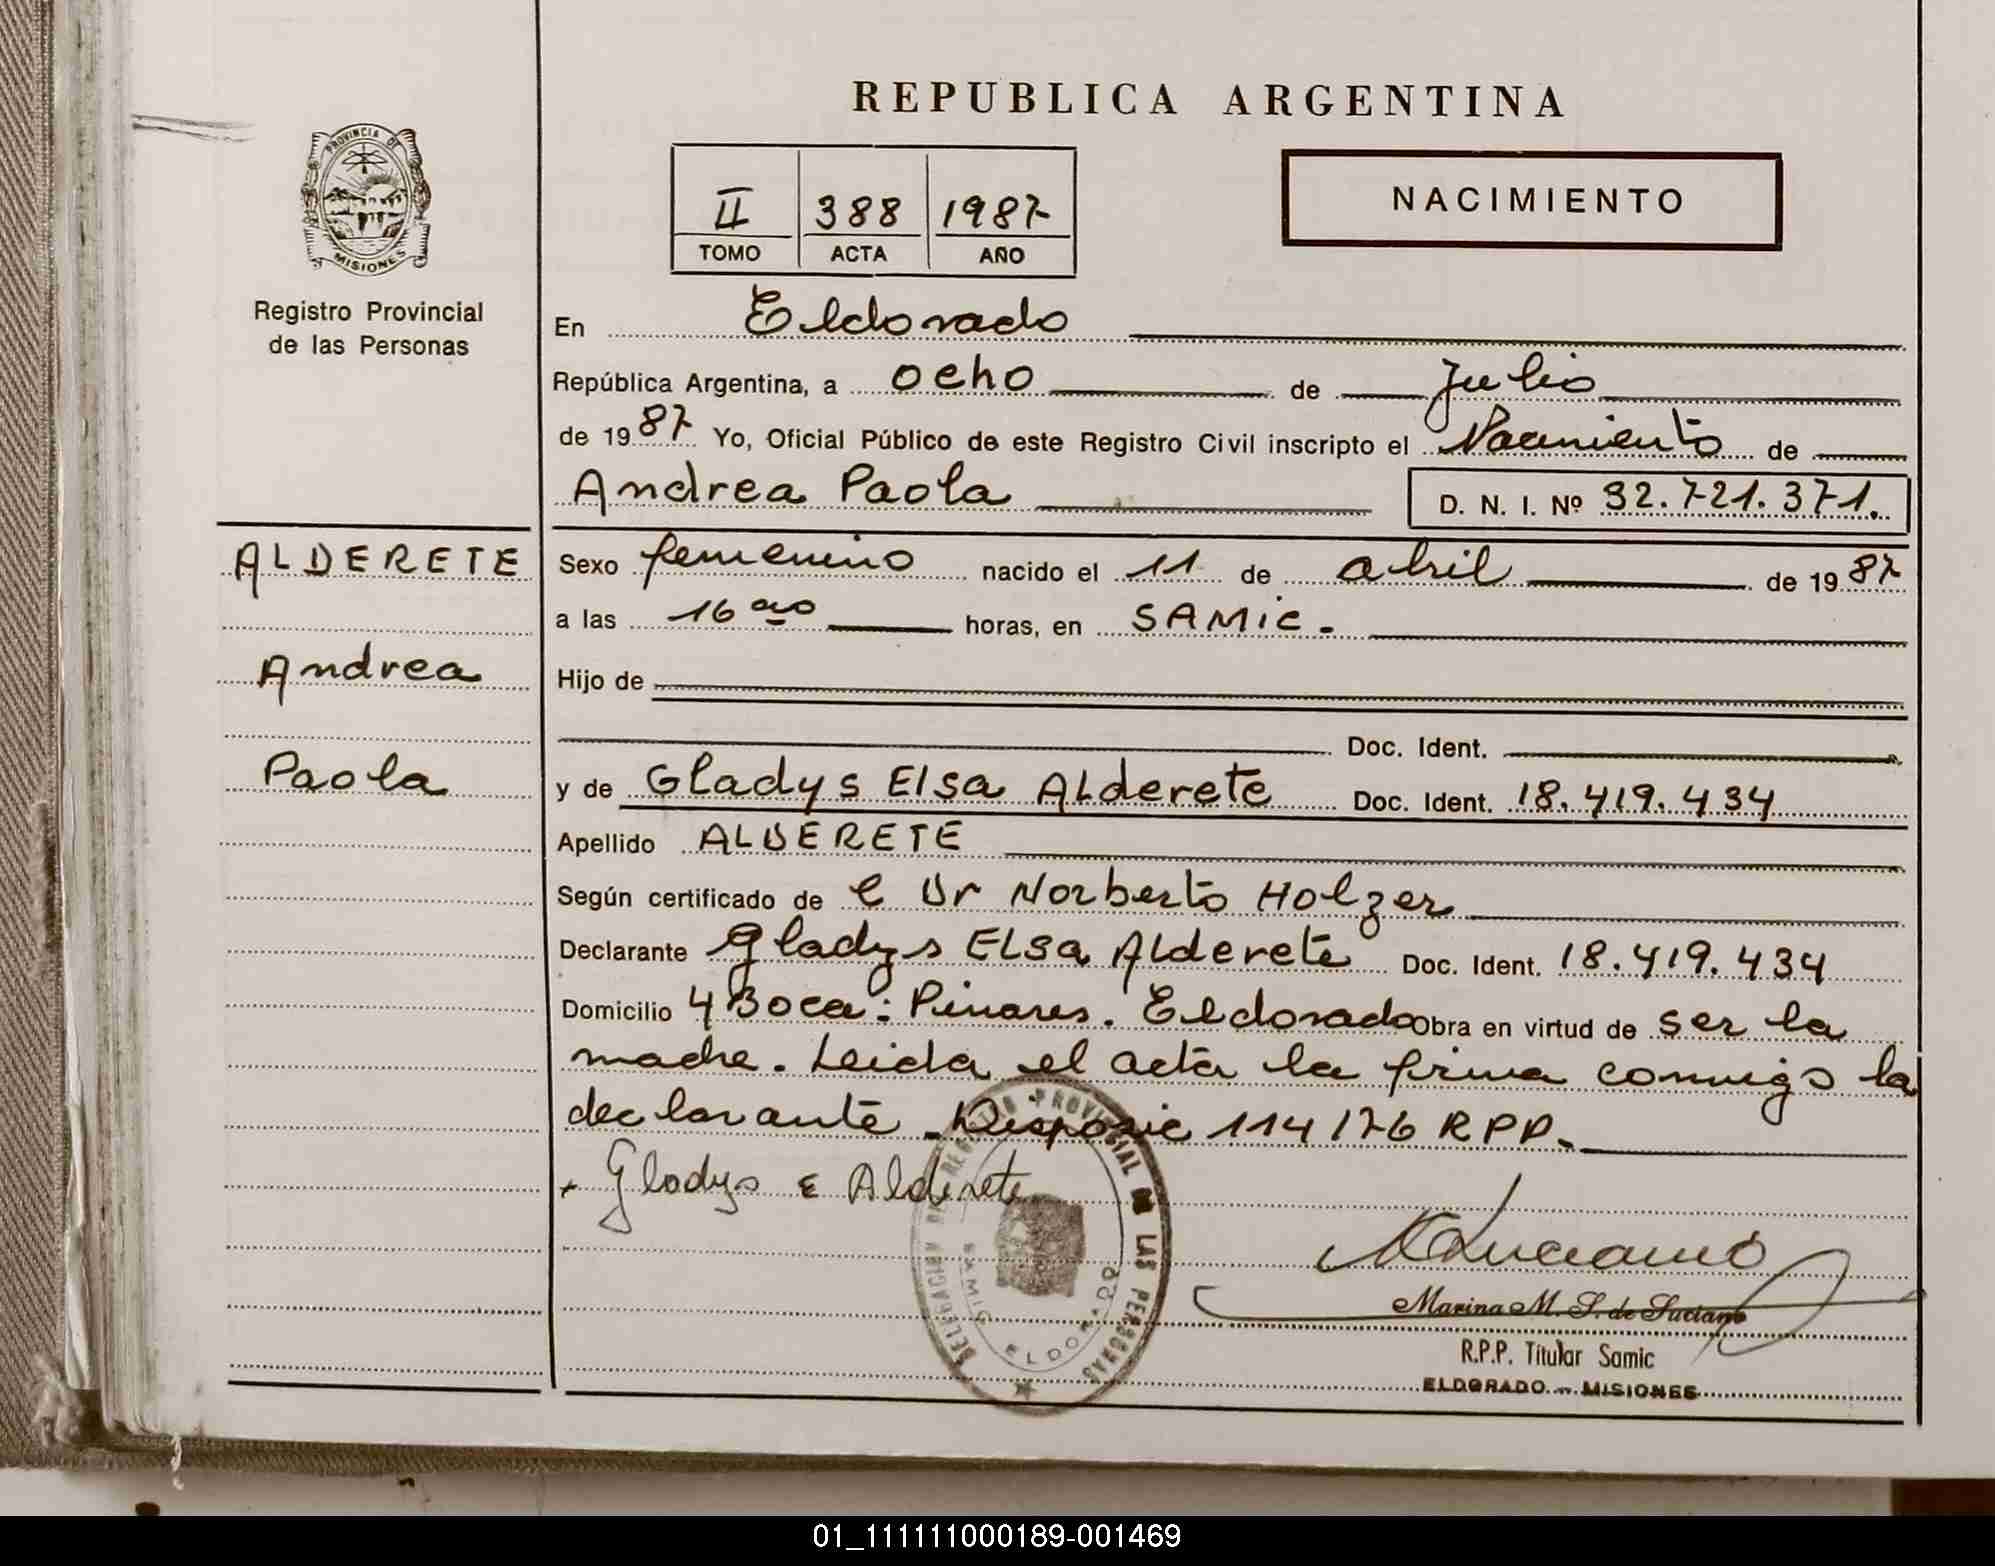 REPUBLICA ARGENTINA
PROVINCIA DE
MISIONES
Registro Provincial
de las Personas
II 388 1987
TOMO ACTA AÑO
NACIMIENTO
En Eldorado
República Argentina, a ocho de Julio
de 1987 Yo, Oficial Público de este Registro Civil inscripto el Nacimiento de
Andrea Paola D. N. I. Nº 32.721.371.
ALDERETE
Andrea
Paola
Sexo femenino nacido el 11 de abril de 1987
a las 16 horas, en SAMIC.
Hijo de
Doc. Ident.
y de Gladys Elsa Alderete Doc. Ident. 18.419.434
Apellido ALDERETE
Según certificado de el Dr Norberto Holzer
Declarante Gladys Elsa Alderete Doc. Ident. 18.419.434
Domicilio 4 Boca: Pinares. Eldorado Obra en virtud de ser la
madre. Leida el acta la firma conmigo la
declarante. Disposic 114/76 RPP.
Gladys E Alderete
DELEGACION DEL REGISTRO PROVINCIAL DE LAS PERSONAS
SAMIC ELDORADO
Luciano
Marina M. S. de Luciano
R.P.P. Titular Samic
ELDORADO - MISIONES
01_111111000189-001469